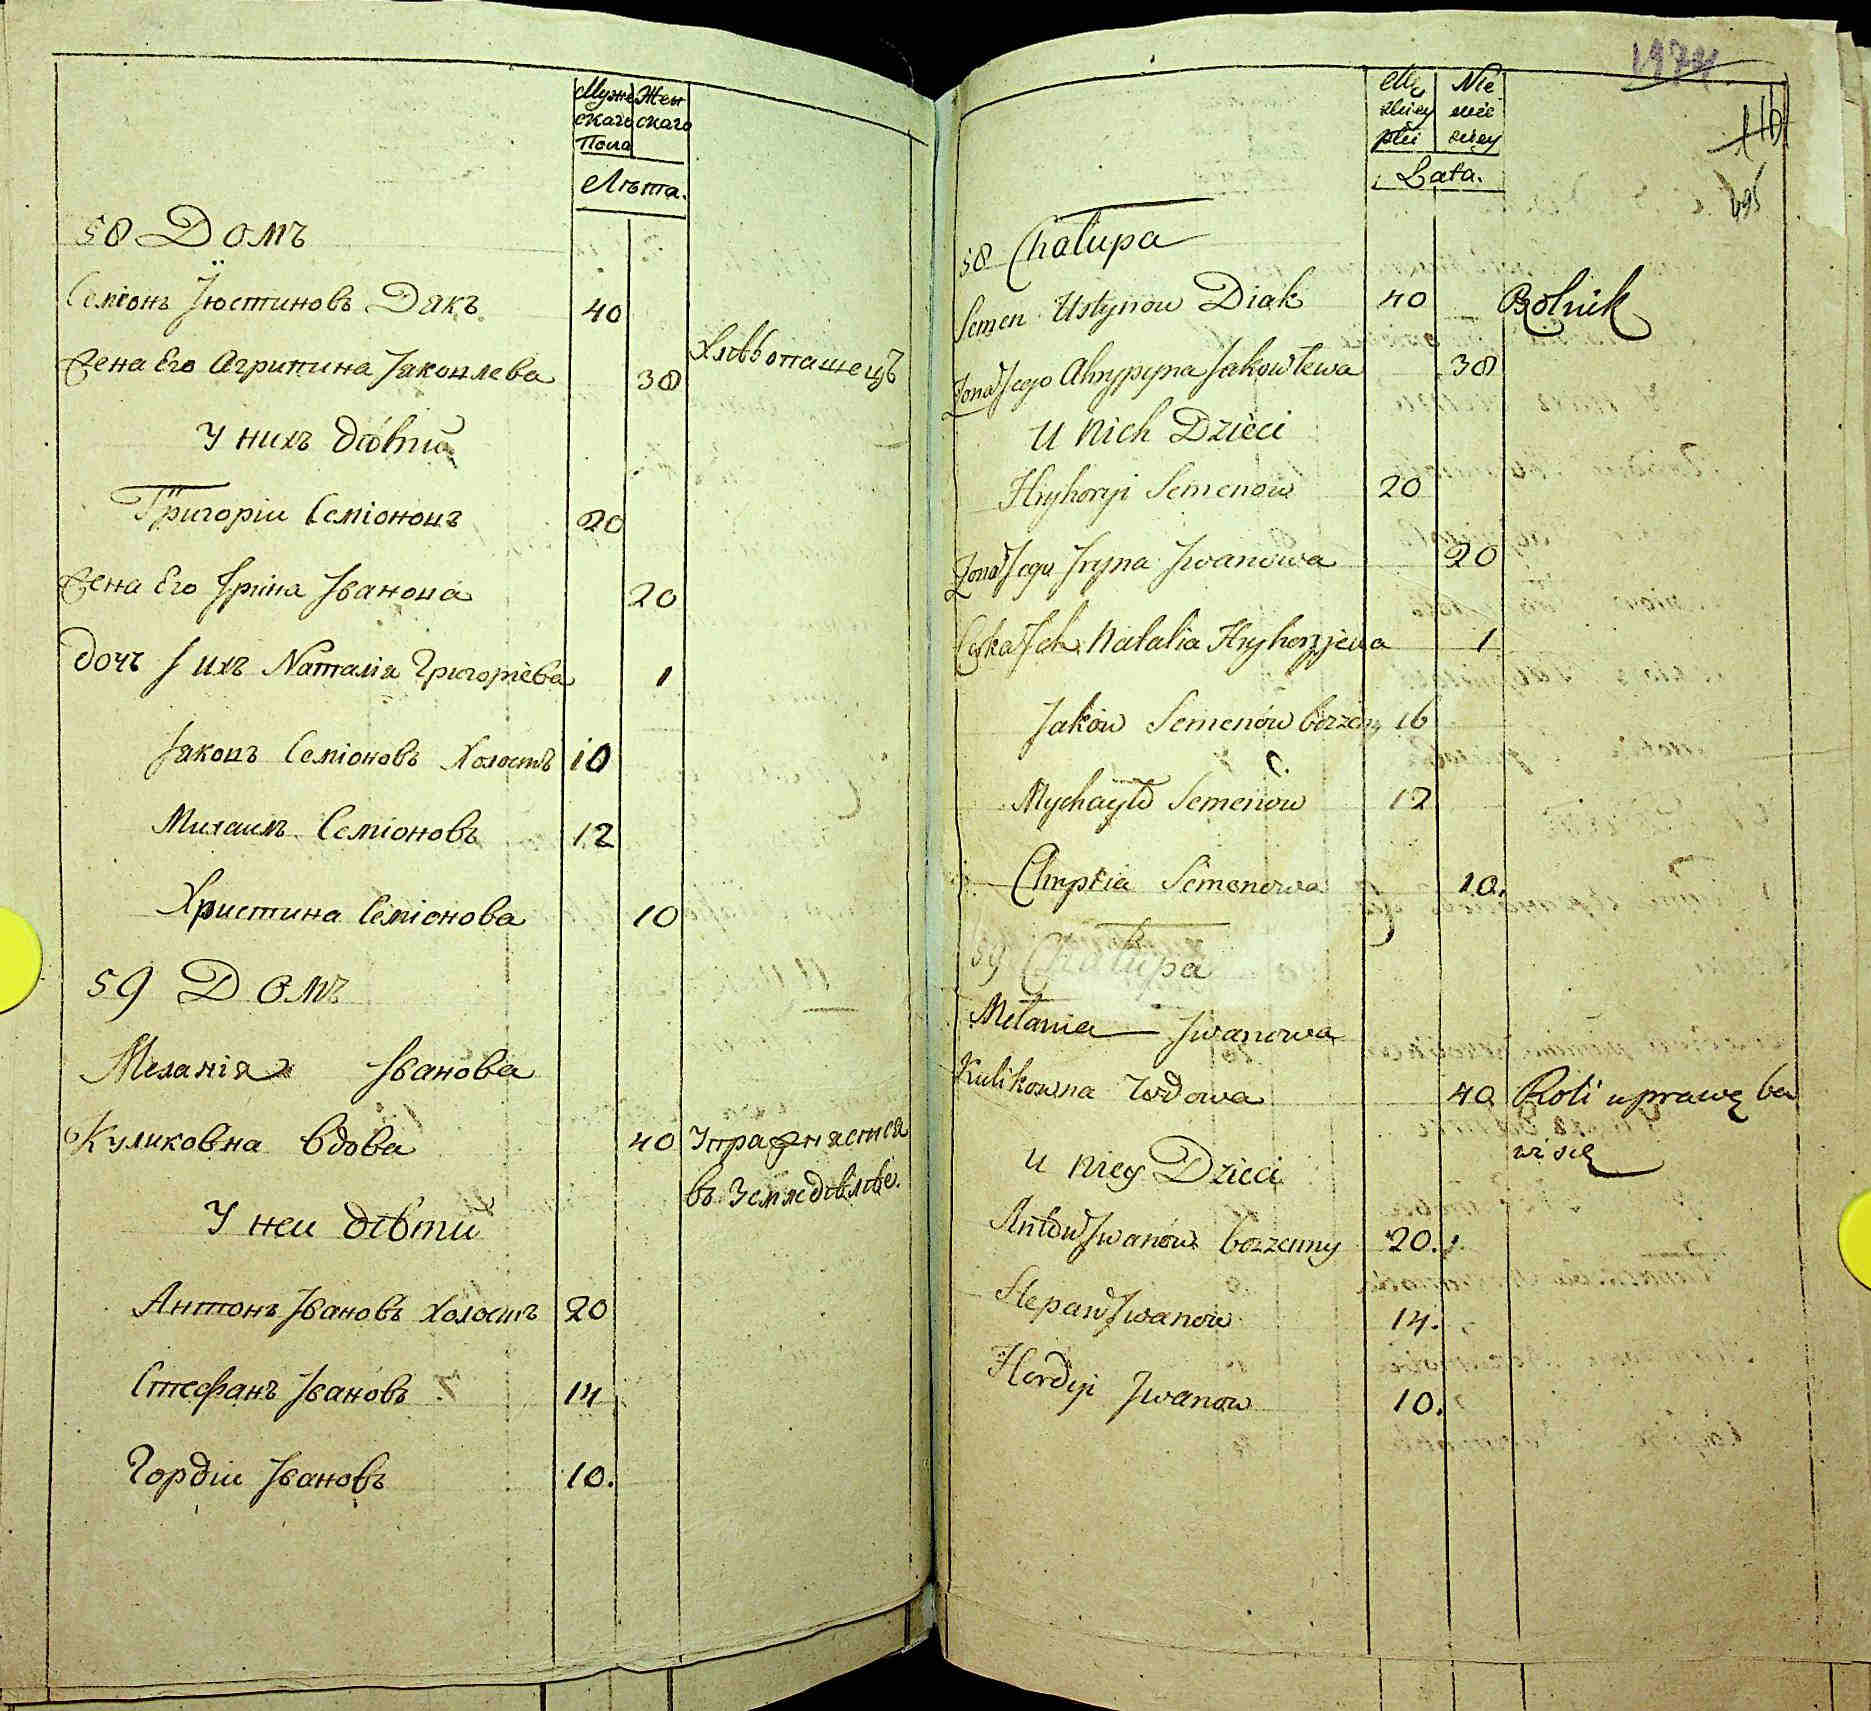 Муже Жен
скаго скаго
Пола
Лѣта.
58 Домъ
Семіонъ Іюстиновъ Дякъ 40
Хлѣбопашецъ
Жена Его Агрипина Іаковлева 38
У нихъ дѣти
Григоріи Семіоновъ 20
Жена Его Іріна Іванова 20
дочь Іихъ Наталія Григоріева 1
Іаковъ Семіоновъ Холостъ 10
Михаилъ Семіоновъ 12
Христина Семіонова 10
59 Домъ
Меланія Іванова
Куликовна вдова 40 Упражняется
въ Земледѣлѣе.
У неи дѣти
Антонъ Івановъ Холостъ 20
Стефанъ Івановъ 14
Гордіи Івановъ 10.
1974
116
695
Mę Nie
zkiey wie
płci sciey
Lata.
58 Chałupa
Semen Ustynow Diak 40 Rolnik
Zona Jego Ahrypyna Jakowlewa 38
U nich Dzieci
Hryhoryi Semenow 20
Zona Jego Iryna Jwanowa 20
Corka Jch Natalia Hryhoryjewa 1
Jaków Semenów bezzenny 16
Mychayło Semenów 12
Semenowa 10.
59 Chałupa
Melania Jwanowa
Kulikowna Wdowa 40 Roli uprawę ba
wi się
U niey Dzieci
Anton Jwanów bezzenny 20.
Stepan Jwanow 14.
Hordyi Jwanow 10.